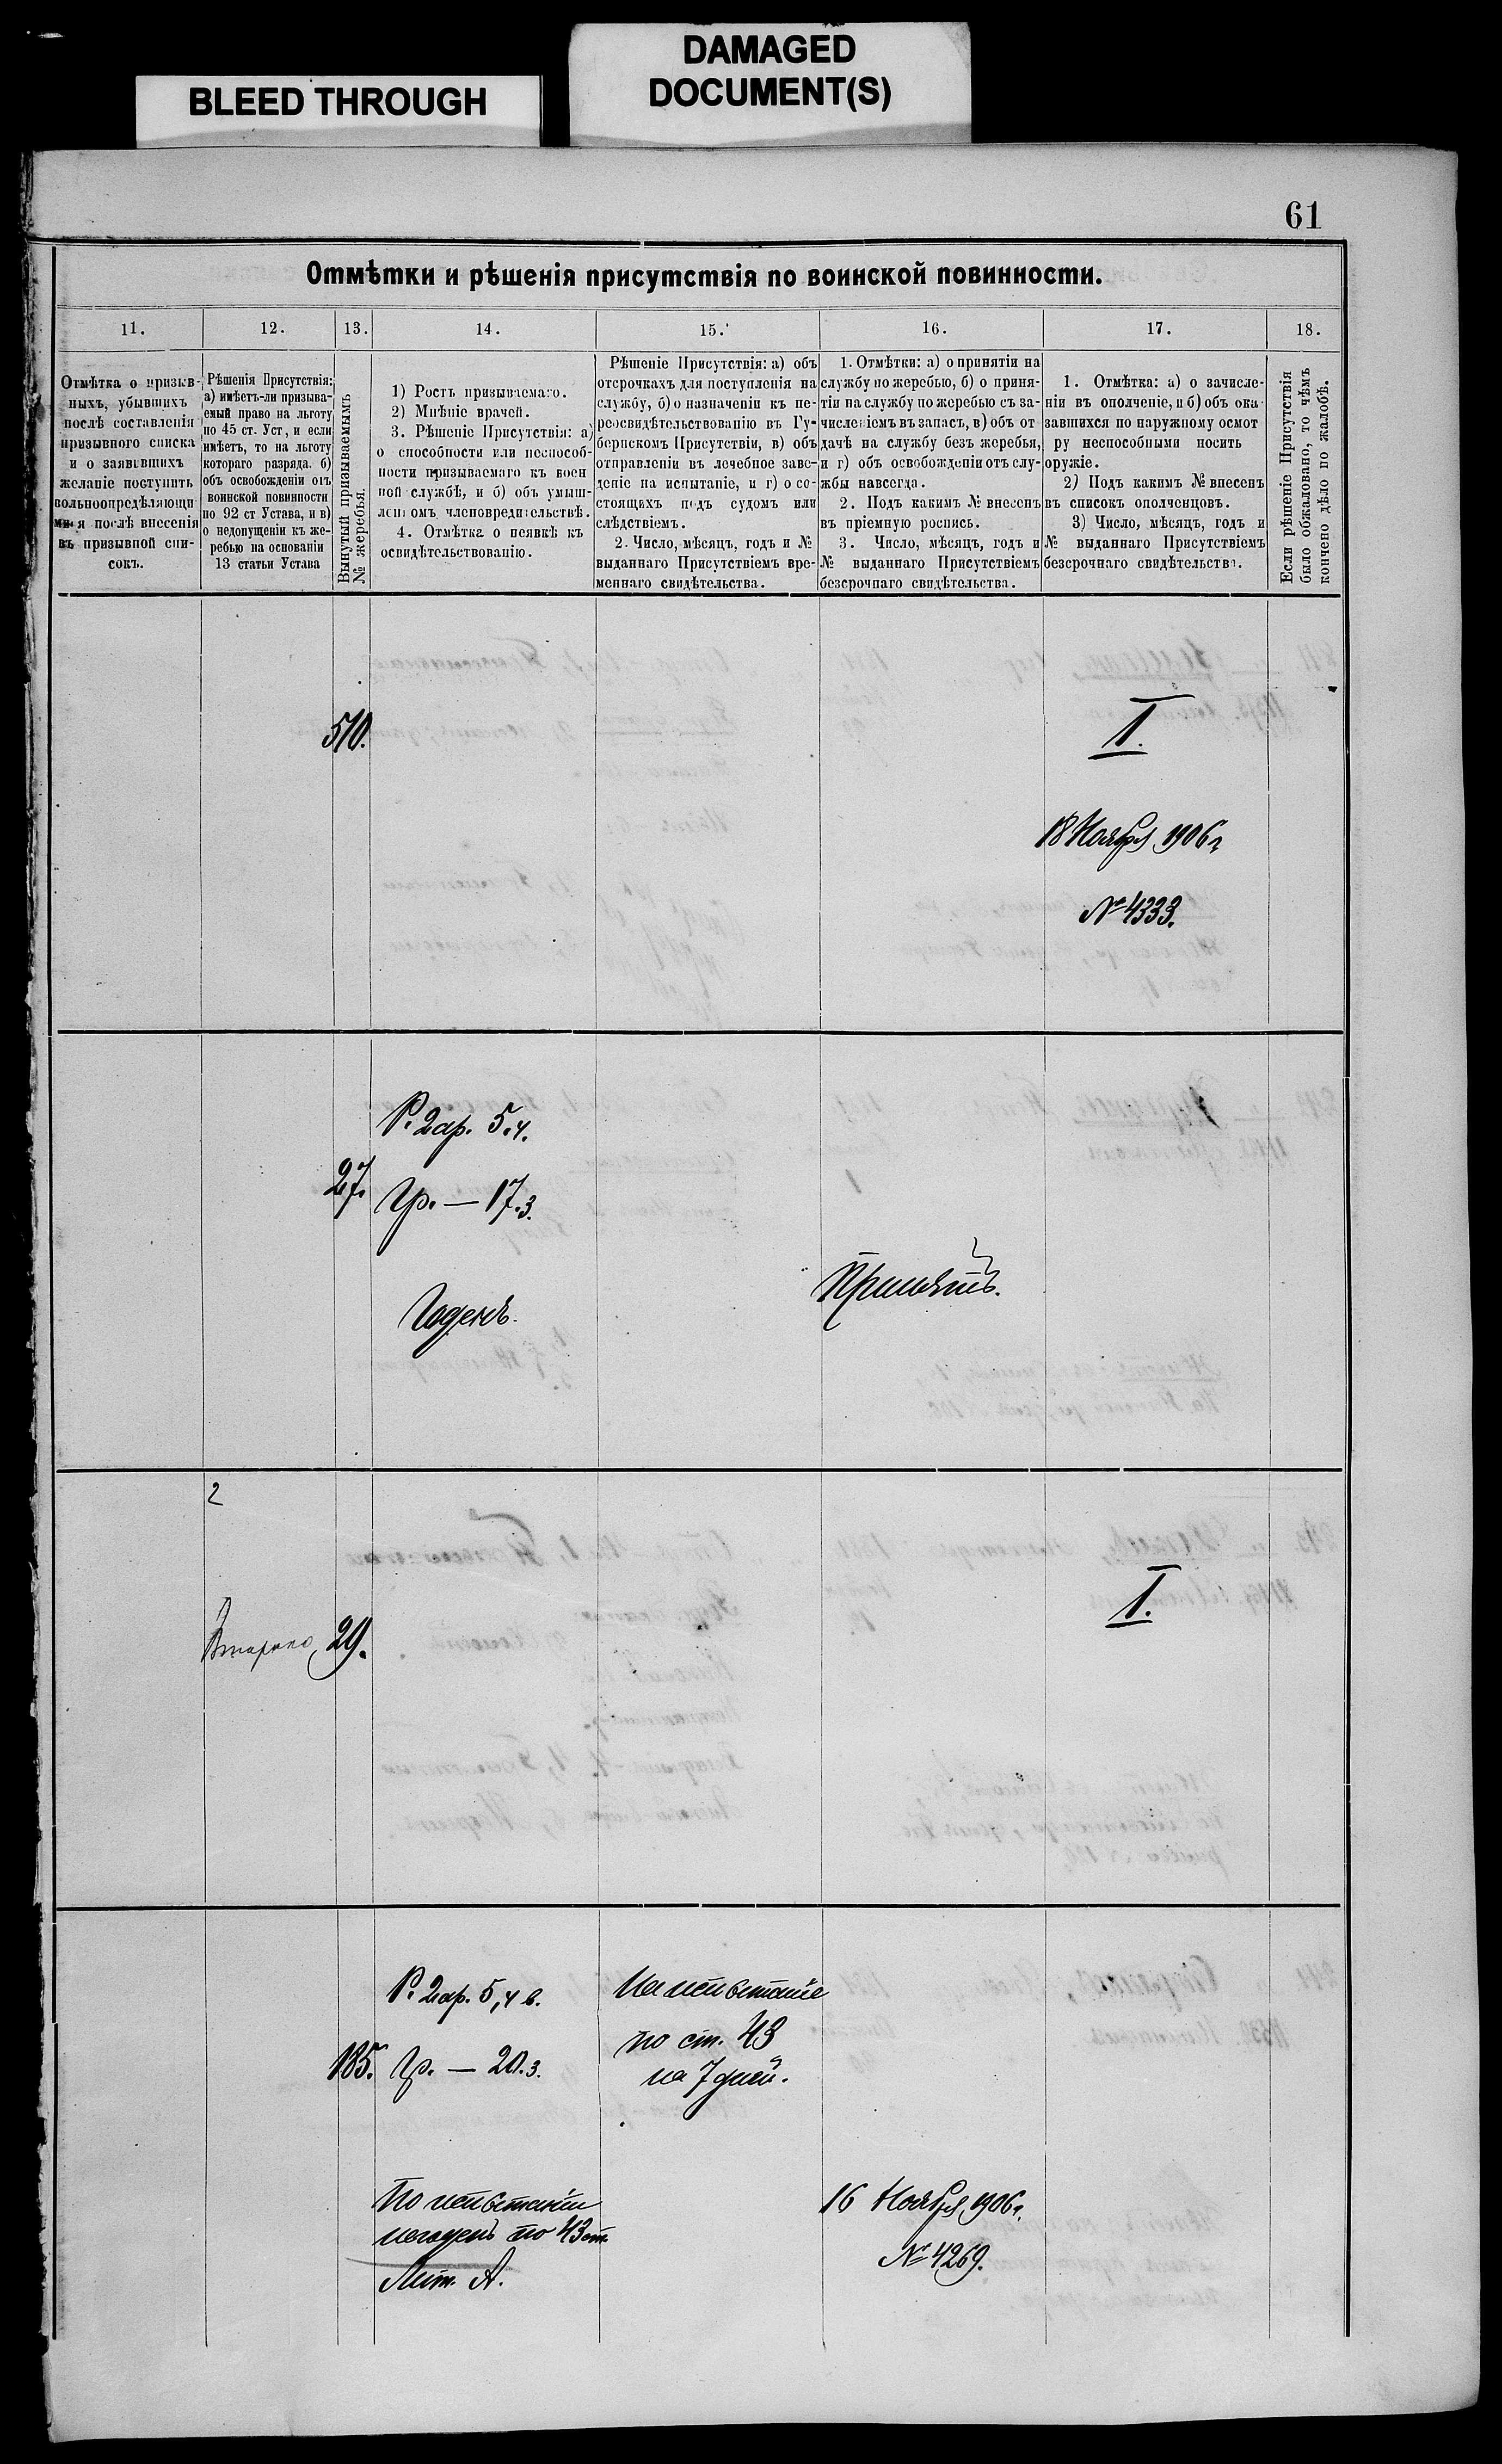 BLEED THROUGH
DAMAGED
DOCUMENT(S)
61
Отмѣтки и рѣшенія присутствія по воинской повинности.
11.
12.
13.
14.
15.
16.
17.
18.
Отмѣтка о призыв-
ныхъ, убывшихъ
послѣ составленія
призывного списка
и о заявившихъ
желаніе поступить
вольноопредѣляющи
мися послѣ внесенія
въ призывной спи-
сокъ.
Рѣшенія Присутствія:
а) имѣетъ-ли призыва-
емый право на льготу
по 45 ст. Уст, и если
имѣетъ, то на льготу
котораго разряда. б)
объ освобожденіи отъ
воинской повинности
по 92 ст Устава, и в)
о недопущеніи къ же-
ребью на основаніи
13 статьи Устава
Вынутый призываемымъ
№ жеребья.
1) Ростъ призываемаго.
2) Мнѣніе врачей.
3. Рѣшеніе Присутствія: а)
о способности или неспособ-
ности призываемаго къ воен
ной службѣ, и б) объ умыш-
ленномъ членовредительствѣ.
4. Отмѣтка о неявкѣ къ
освидѣтельствованію.
Рѣшеніе Присутствія: а) объ
отсрочкахъ для поступленія на
службу, б) о назначеніи къ пе-
реосвидѣтельствованію въ Гу-
бернскомъ Присутствіи, в) объ
отправленіи въ лечебное заве-
деніе на испытаніе, и г) о со-
стоящихъ подъ судомъ или
слѣдствіемъ.
2. Число, мѣсяцъ, годъ и №
выданнаго Присутствіемъ вре-
меннаго свидѣтельства.
1. Отмѣтки: а) о принятіи на
службу по жеребью, б) о приня-
тіи на службу по жеребью съ за-
численіемъ въ запасъ, в) объ от
дачѣ на службу безъ жеребья,
и г) объ освобожденіи отъ слу-
жбы навсегда.
2. Подъ какимъ № внесенъ
въ пріемную роспись.
3. Число, мѣсяцъ, годъ и
№ выданнаго Присутствіемъ
безсрочнаго свидѣтельства.
1. Отмѣтка: а) о зачисле-
ніи въ ополченіе, и б) объ ока-
завшихся по наружному осмот
ру неспособными носить
оружіе.
2) Подъ какимъ № внесенъ
въ списокъ ополченцовъ.
3) Число, мѣсяцъ, годъ и
№ выданнаго Присутствіемъ
безсрочнаго свидѣтельства.
Если рѣшеніе Присутствія
было обжаловано, то чѣмъ
кончено дѣло по жалобѣ.
510.
I.
18 Ноября 1906 г
№ 4333.
27.
Р. 2 ар. 5. ч.
Гр. — 17. з.
Годенъ.
Принятъ.
2
29.
I.
185.
Р. 2 ар. 5, ч в.
Гр. — 20. з.
На испытаніе
по ст. 43
на 7 дней.
По испытаніи
негоденъ по 43 ст.
Лит. А.
16 Ноября 1906 г.
№ 4269.